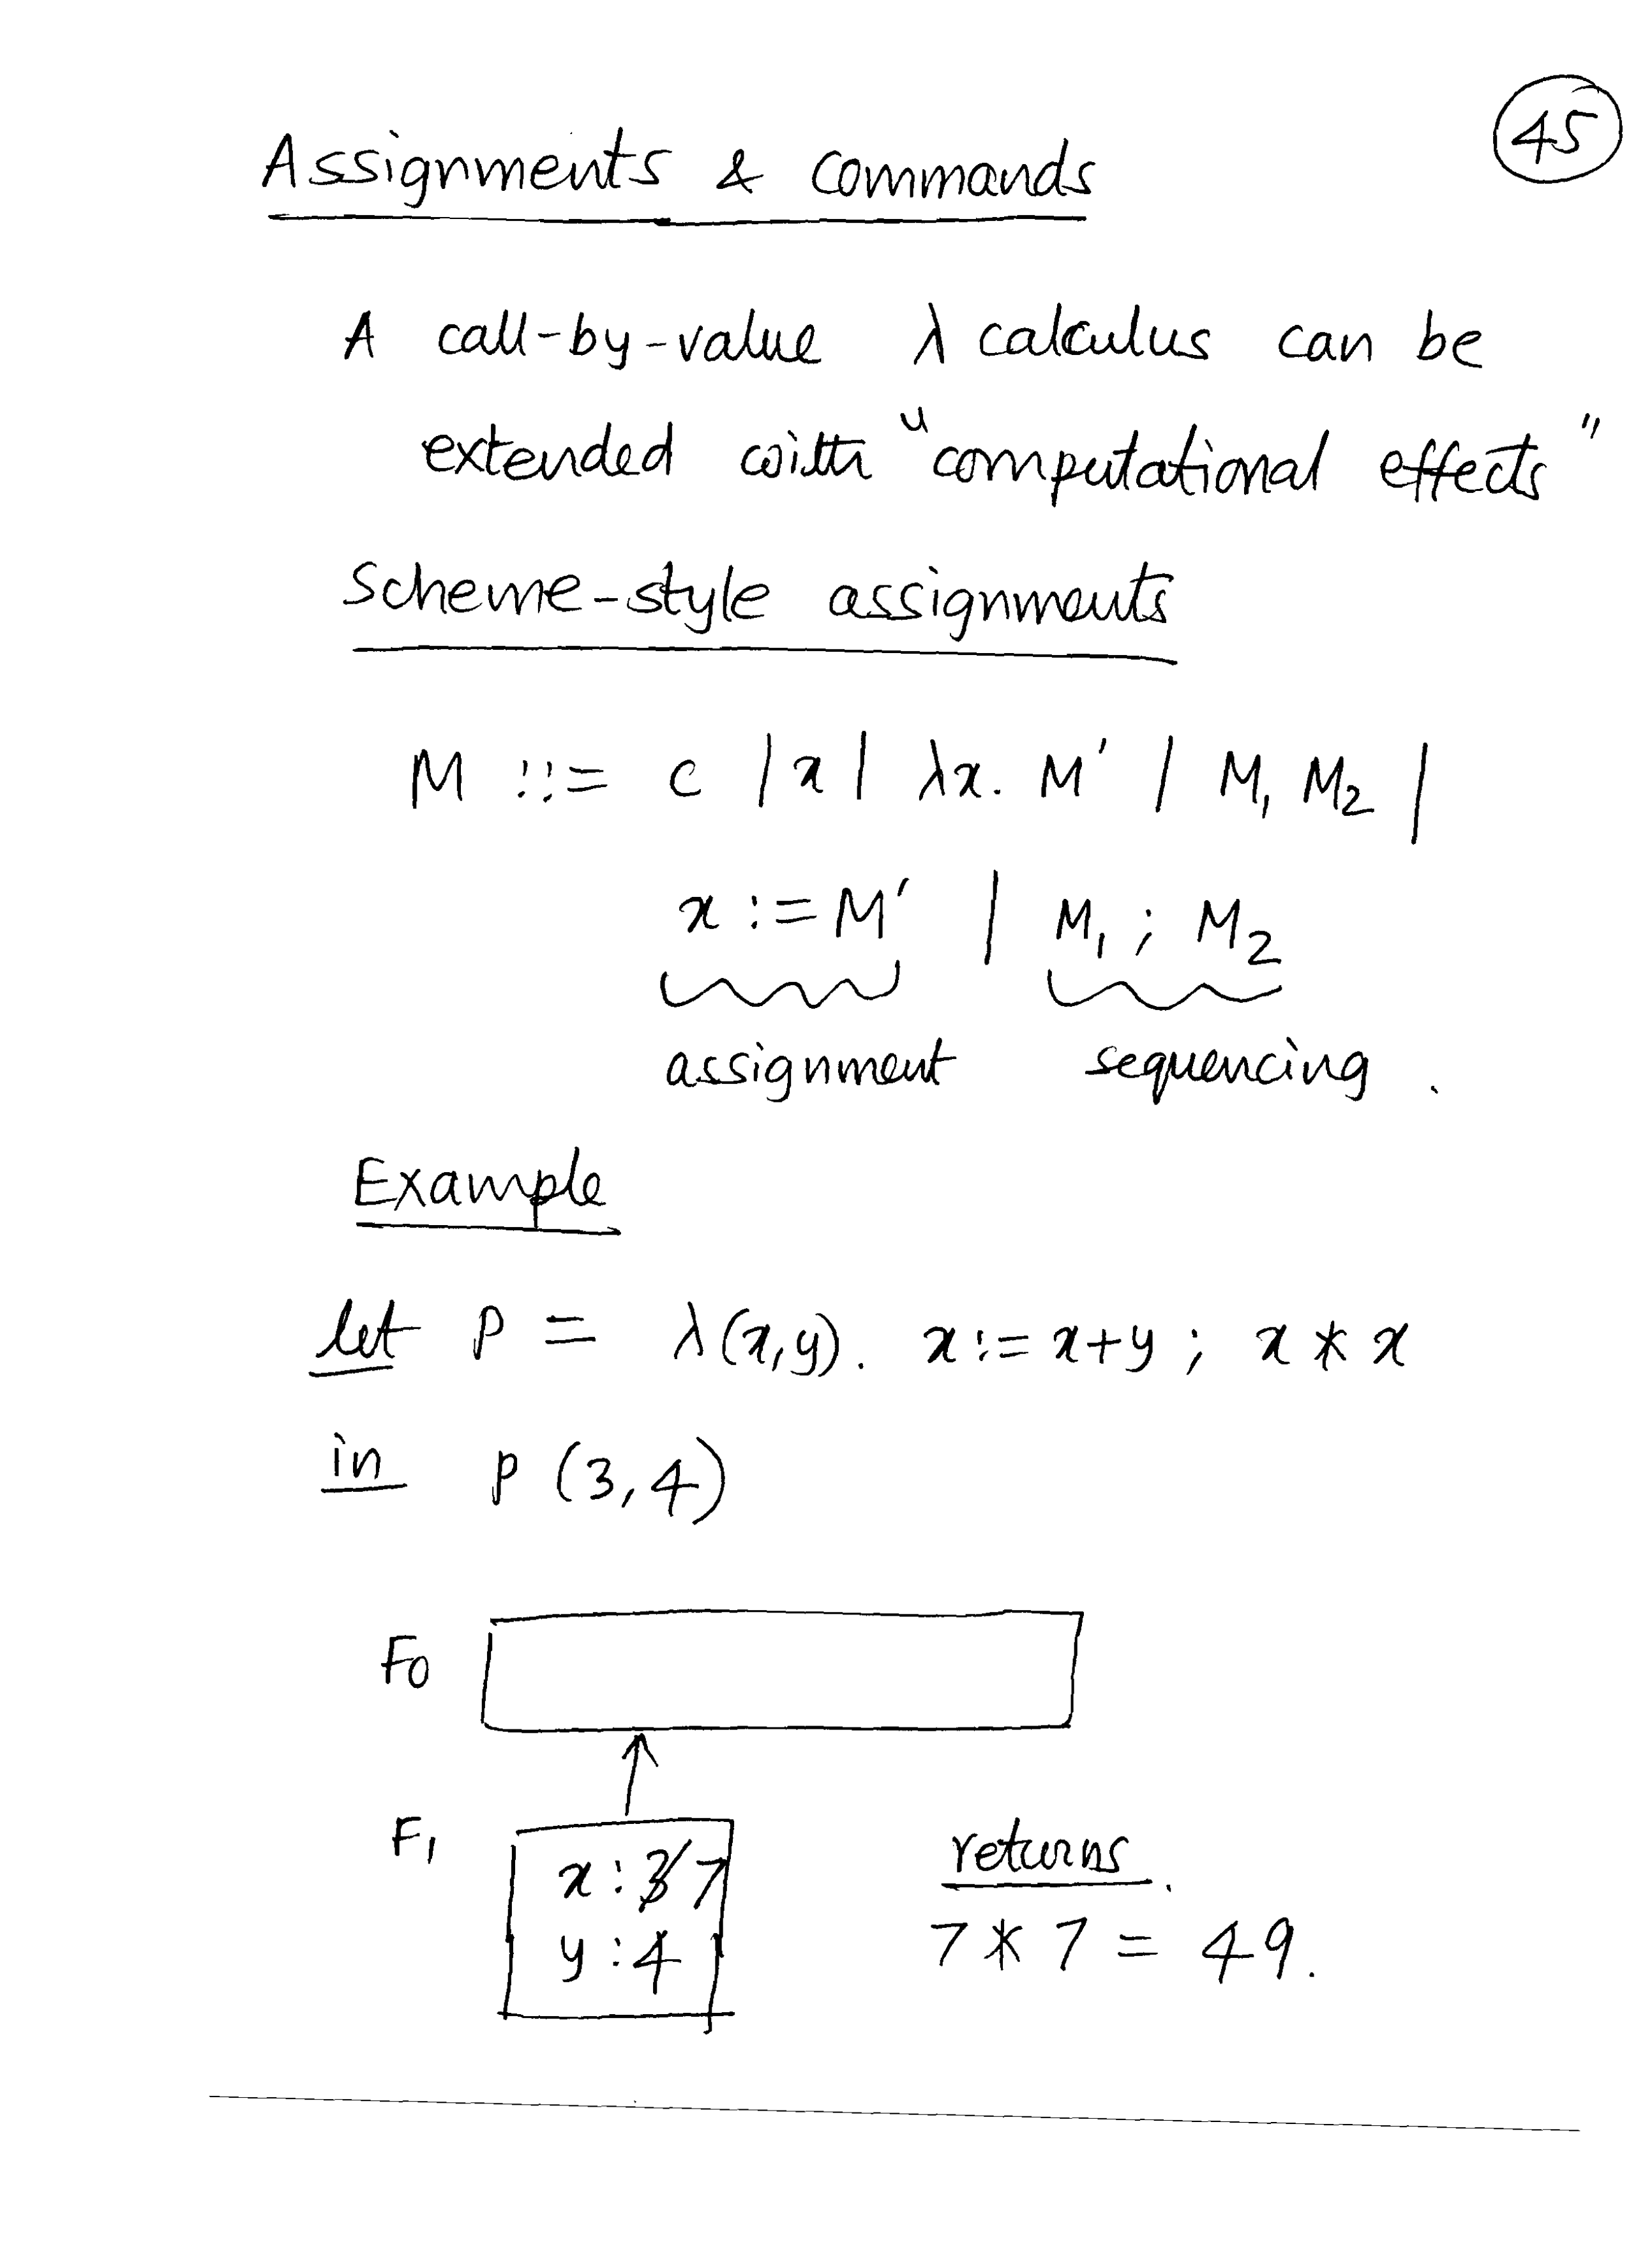 45
Assignments & Commands
A call-by-value λ calculus can be
extended with "computational effects"
Scheme-style assignments
M ::= c | x | λx. M' | M₁ M₂ |
x := M' | M₁ ; M₂
assignment sequencing.
Example
let p = λ(x,y). x := x+y ; x * x
in p (3,4)
F0
F₁
x : 3 7
y : 4
returns.
7 * 7 = 49.